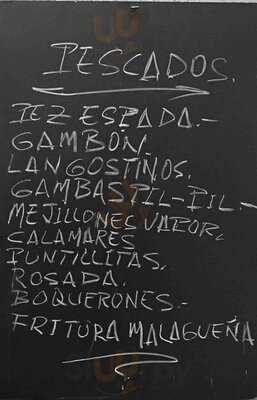 PESCADOS.
PEZ ESPADA.-
GAMBÓN.
LANGOSTINOS.
GAMBAS PIL-PIL.-
MEJILLONES VAPOR.
CALAMARES
PUNTILLITAS.
ROSADA.
BOQUERONES.-
FRITURA MALAGUEÑA